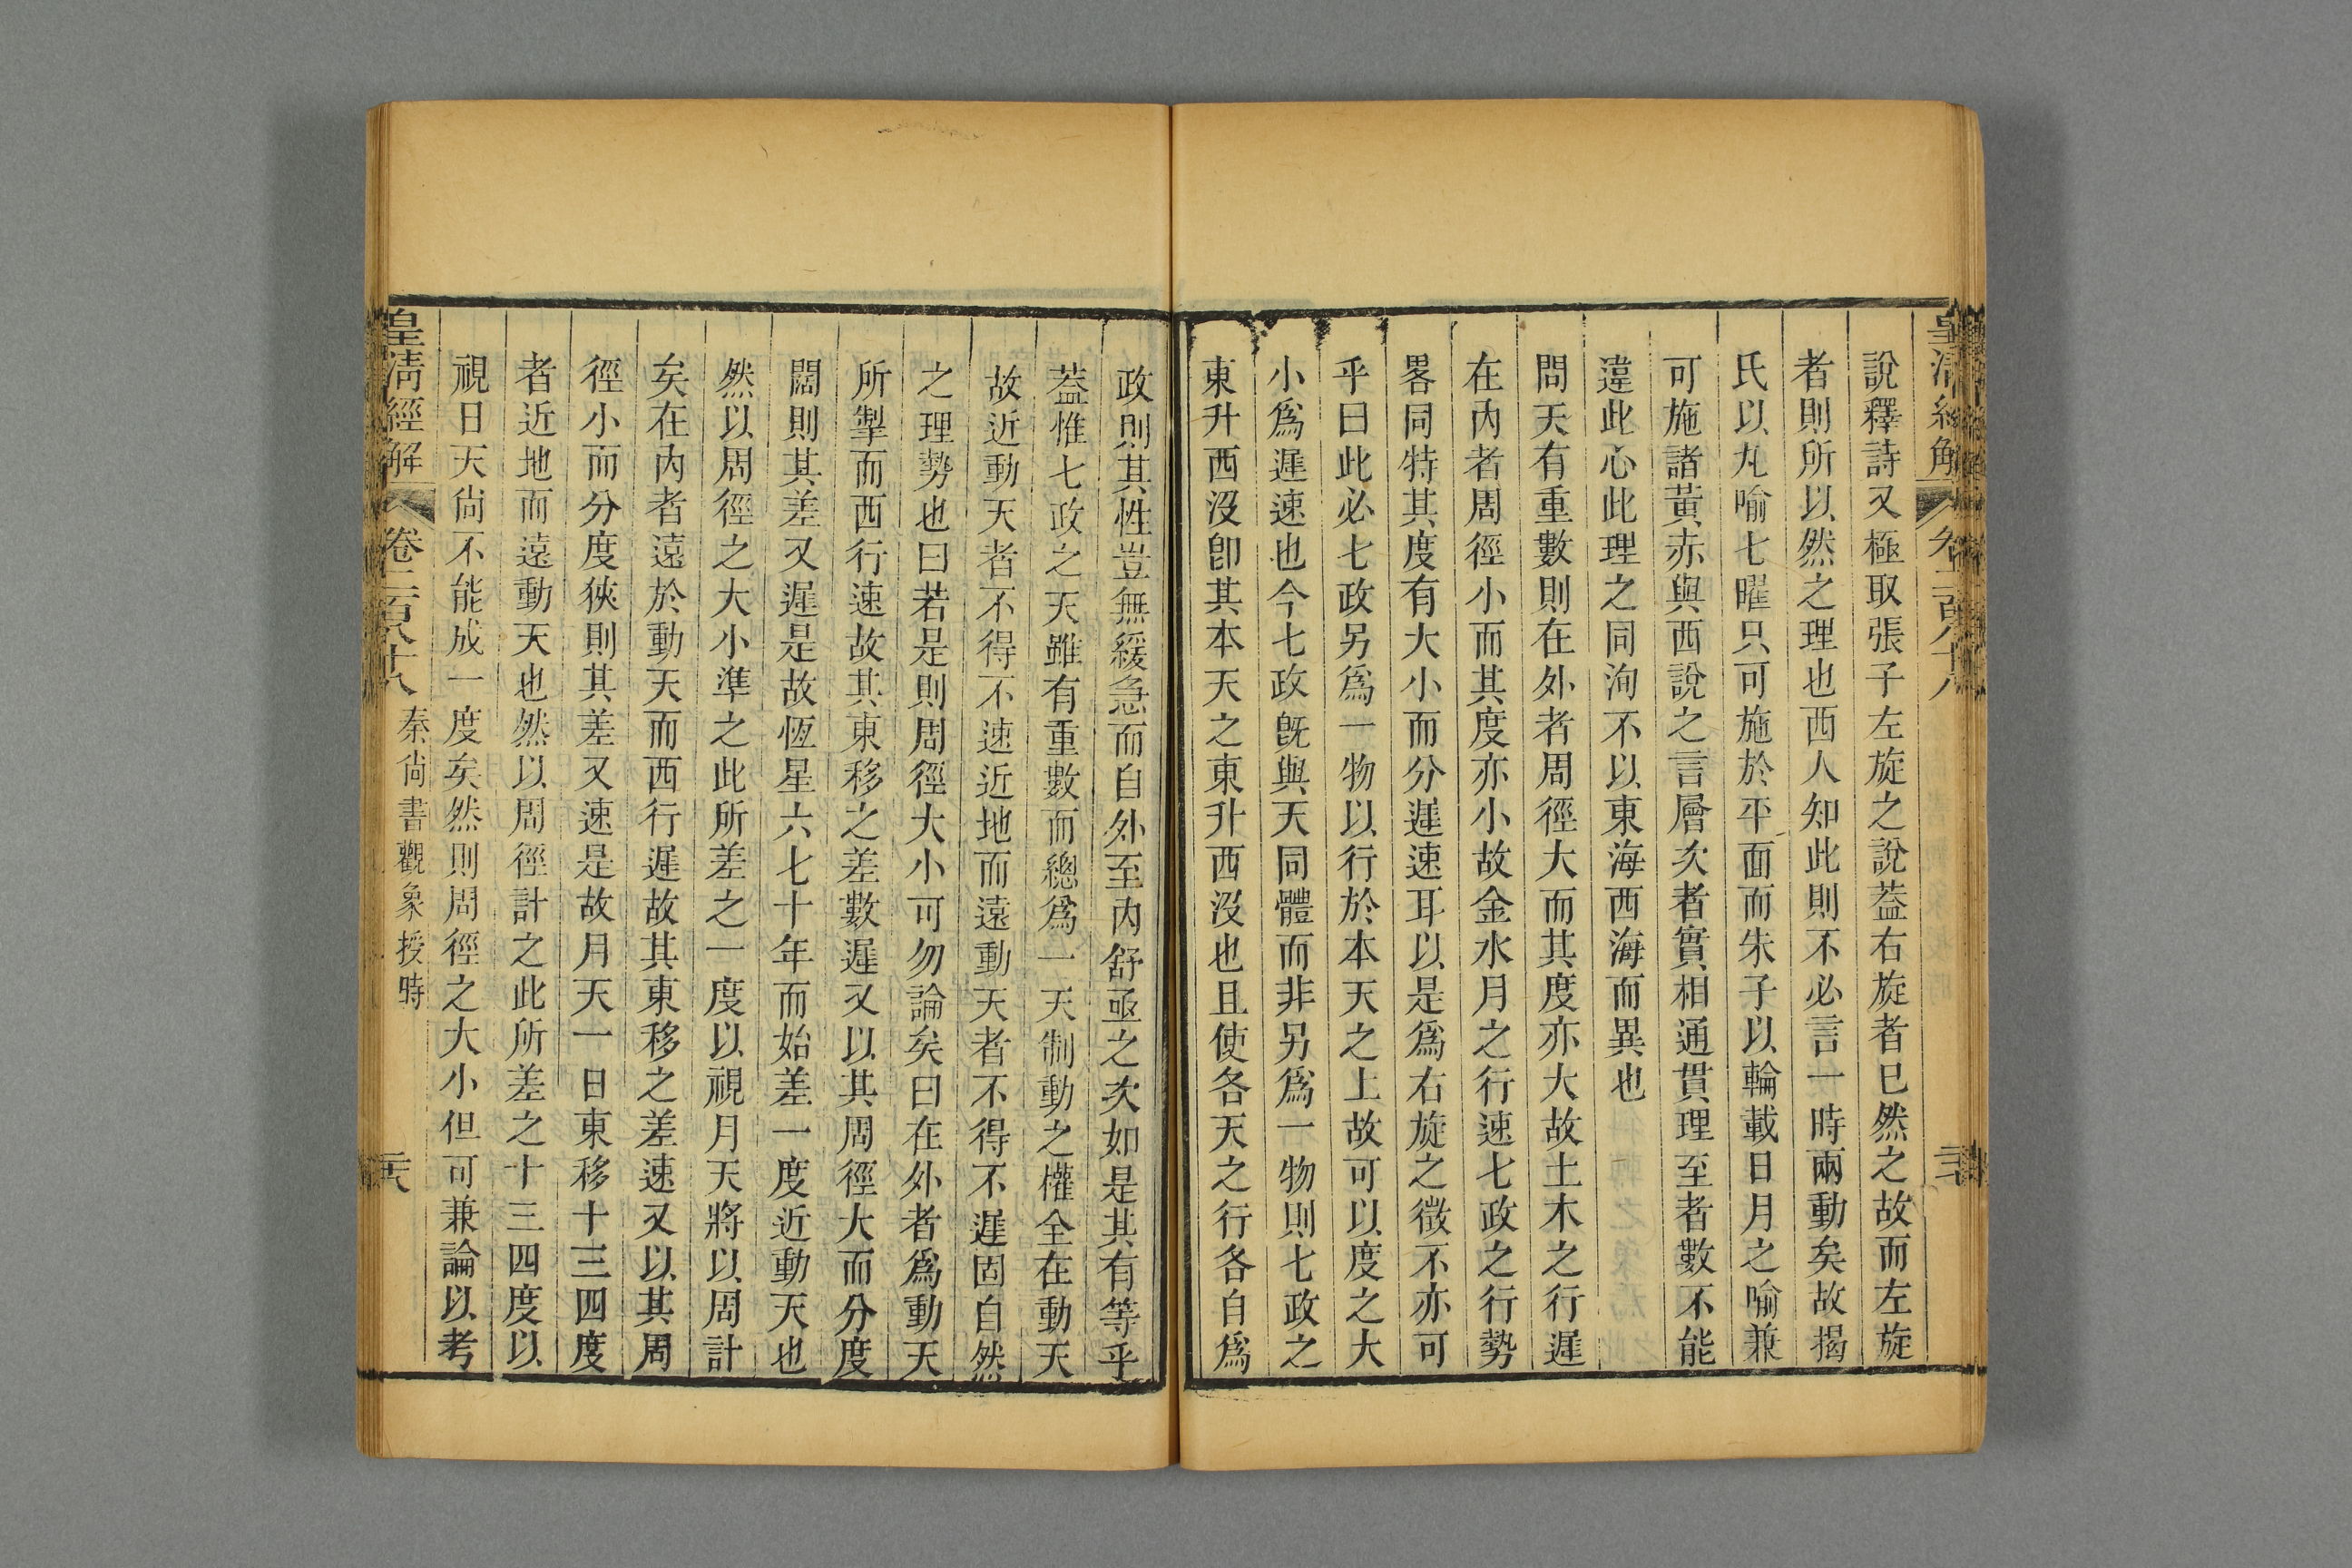 皇清經解 卷二百八十八
說釋詩又極取張子左旋之說葢右旋者已然之故而左旋
者則所以然之理也西人知此則不必言一時兩動矣故揭
氏以丸喻七曜只可施於平面而朱子以輪載日月之喻兼
可施諸黃赤與西說之言層次者實相通貫理至者數不能
違此心此理之同洵不以東海西海而異也
問天有重數則在外者周徑大而其度亦大故土木之行遲
在內者周徑小而其度亦小故金水月之行速七政之行勢
畧同特其度有大小而分遲速耳以是爲右旋之徵不亦可
乎曰此必七政另爲一物以行於本天之上故可以度之大
小爲遲速也今七政旣與天同體而非另爲一物則七政之
東升西沒卽其本天之東升西沒也且使各天之行各自爲
政則其性豈無緩急而自外至內舒亟之次如是其有等乎
葢惟七政之天雖有重數而總爲一天制動之權全在動天
故近動天者不得不速近地而遠動天者不得不遲固自然
之理勢也曰若是則周徑大小可勿論矣曰在外者爲動天
所掣而西行速故其東移之差數遲又以其周徑大而分度
闊則其差又遲是故恆星六七十年而始差一度近動天也
然以周徑之大小準之此所差之一度以視月天將以周計
矣在內者遠於動天而西行遲故其東移之差速又以其周
徑小而分度狹則其差又速是故月天一日東移十三四度
者近地而遠動天也然以周徑計之此所差之十三四度以
視日天尙不能成一度矣然則周徑之大小但可兼論以考
皇清經解 卷二百八十八 秦尙書觀象授時 二十八